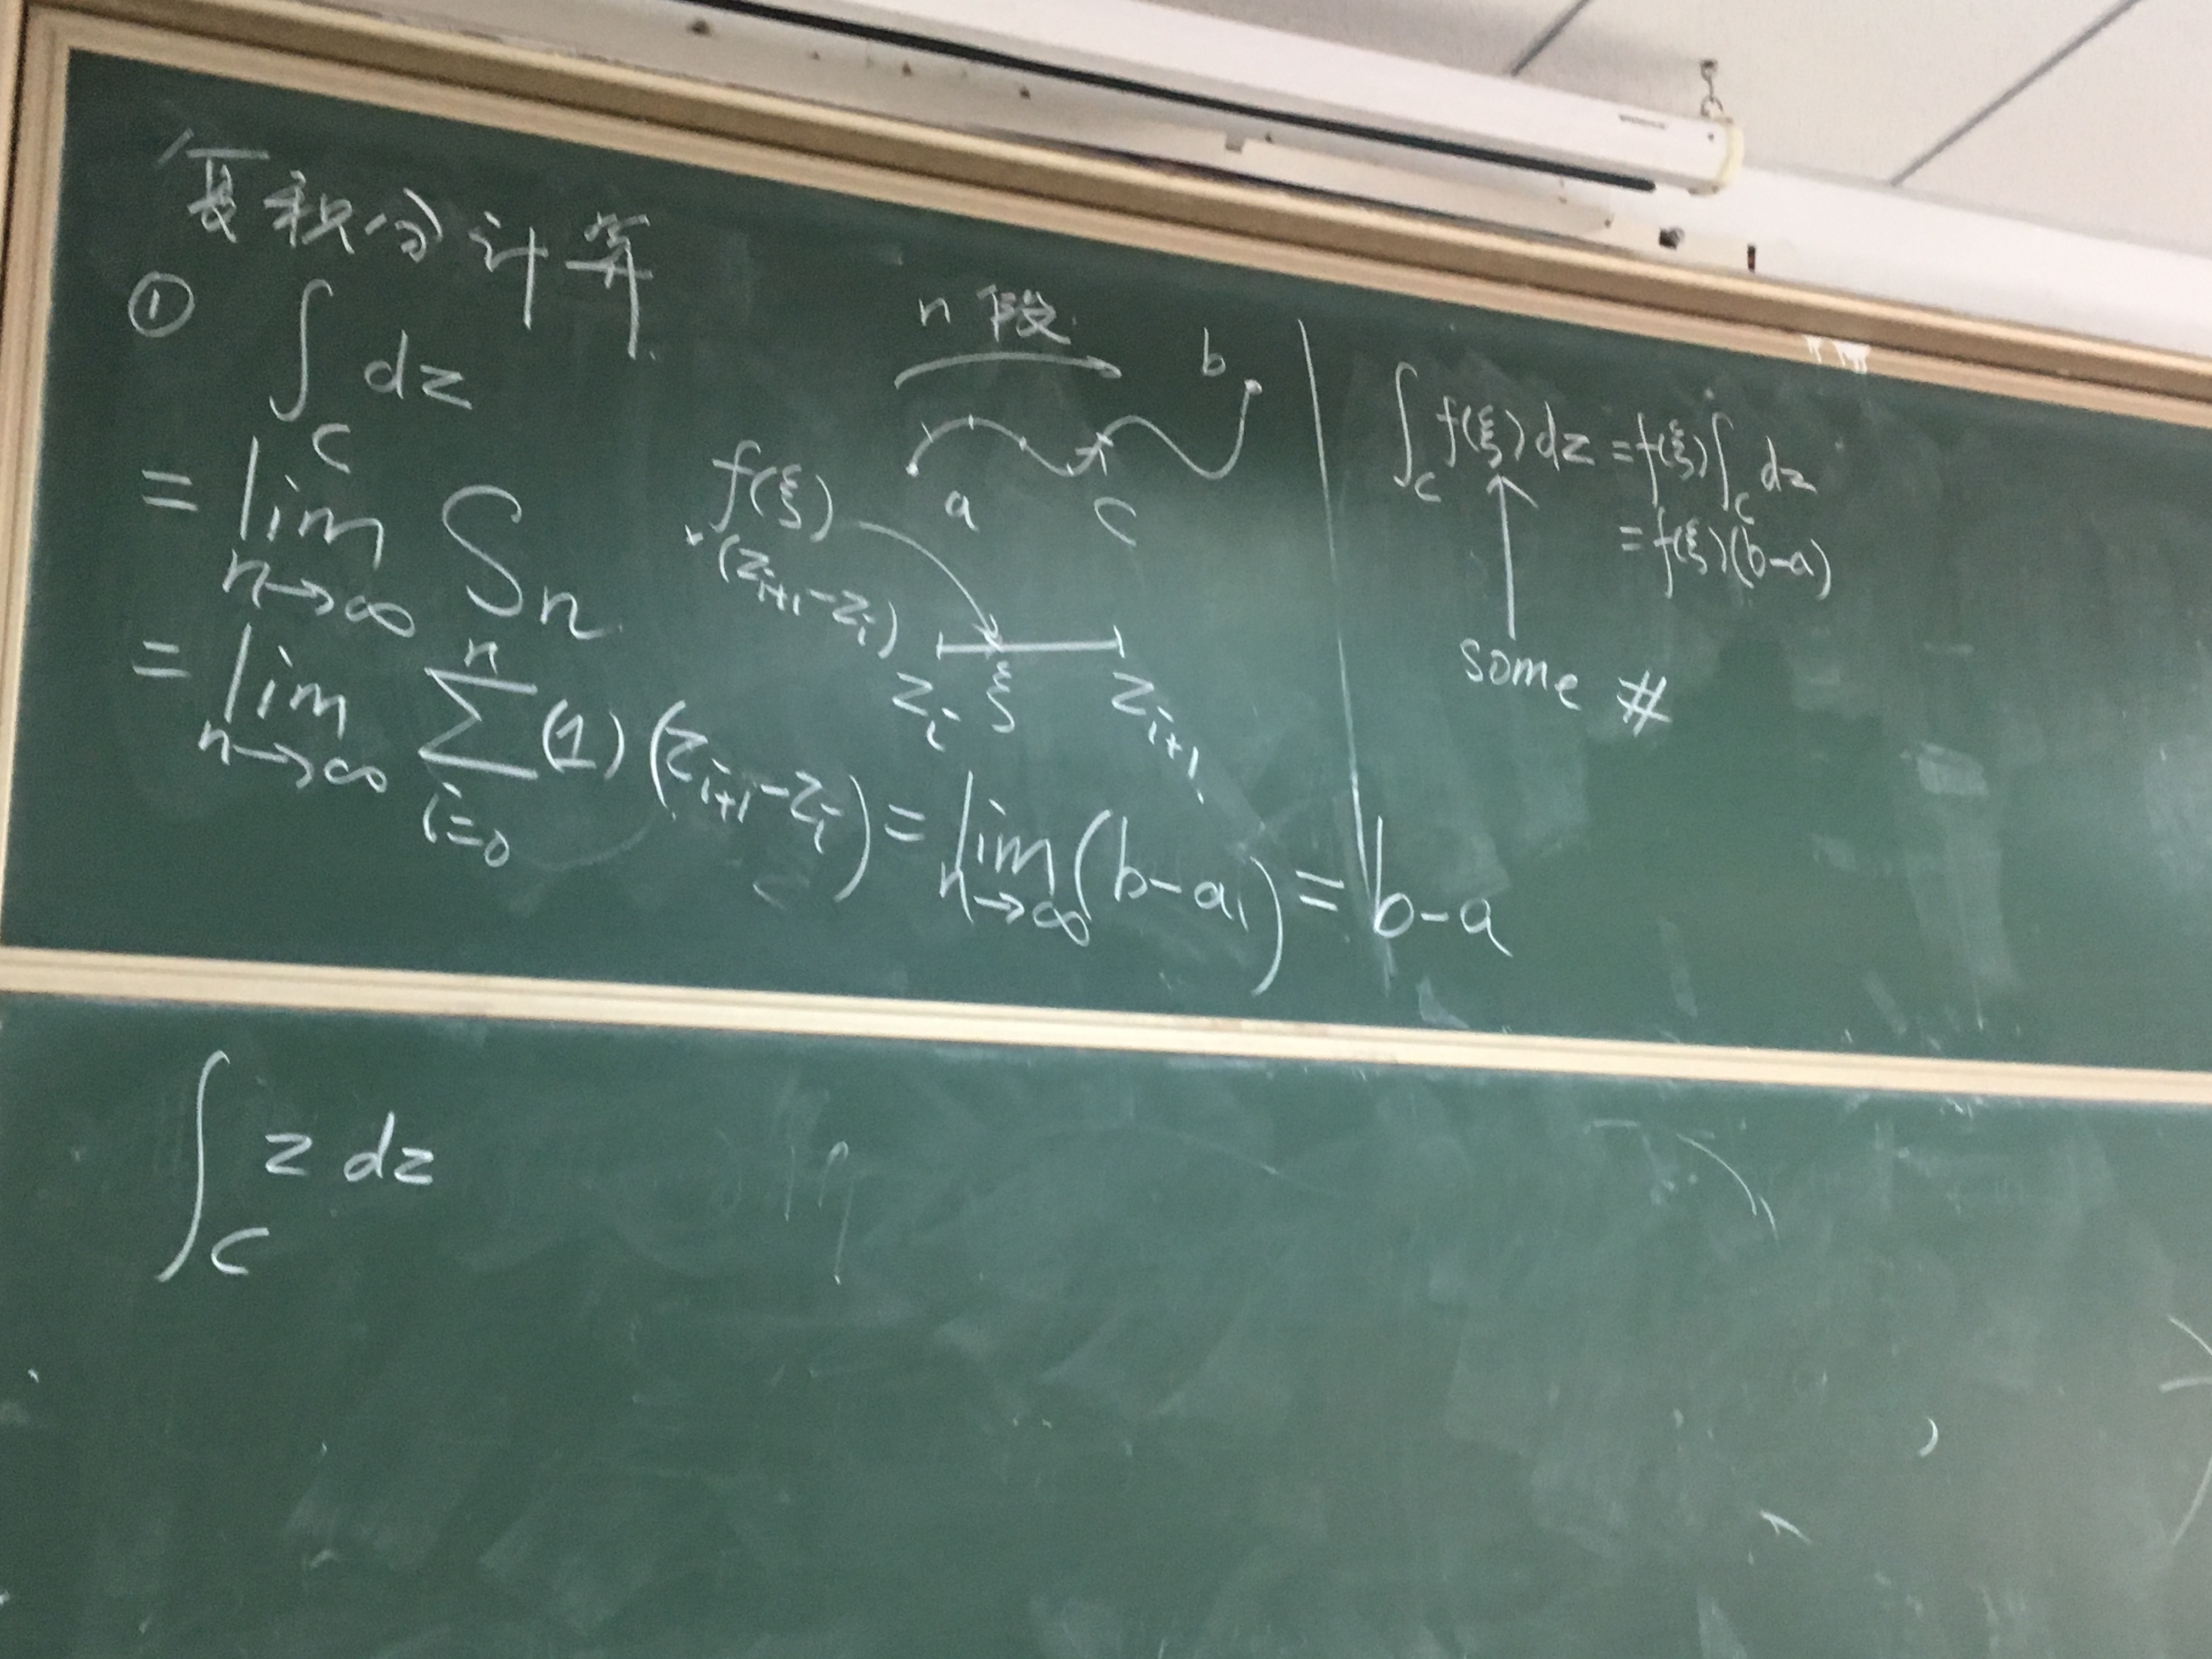 复积分计算
① ∫_C dz
= lim_{n→∞} S_n
= lim_{n→∞} ∑_{i=0}^{n} (1) (z_{i+1} - z_i) = lim_{n→∞} (b-a) = b-a
n 段
b
a
C
f(ξ)
·(z_{i+1} - z_i)
z_i ξ z_{i+1}
∫_C f(ξ) dz = f(ξ) ∫_C dz
= f(ξ)(b-a)
some #
∫_C z dz